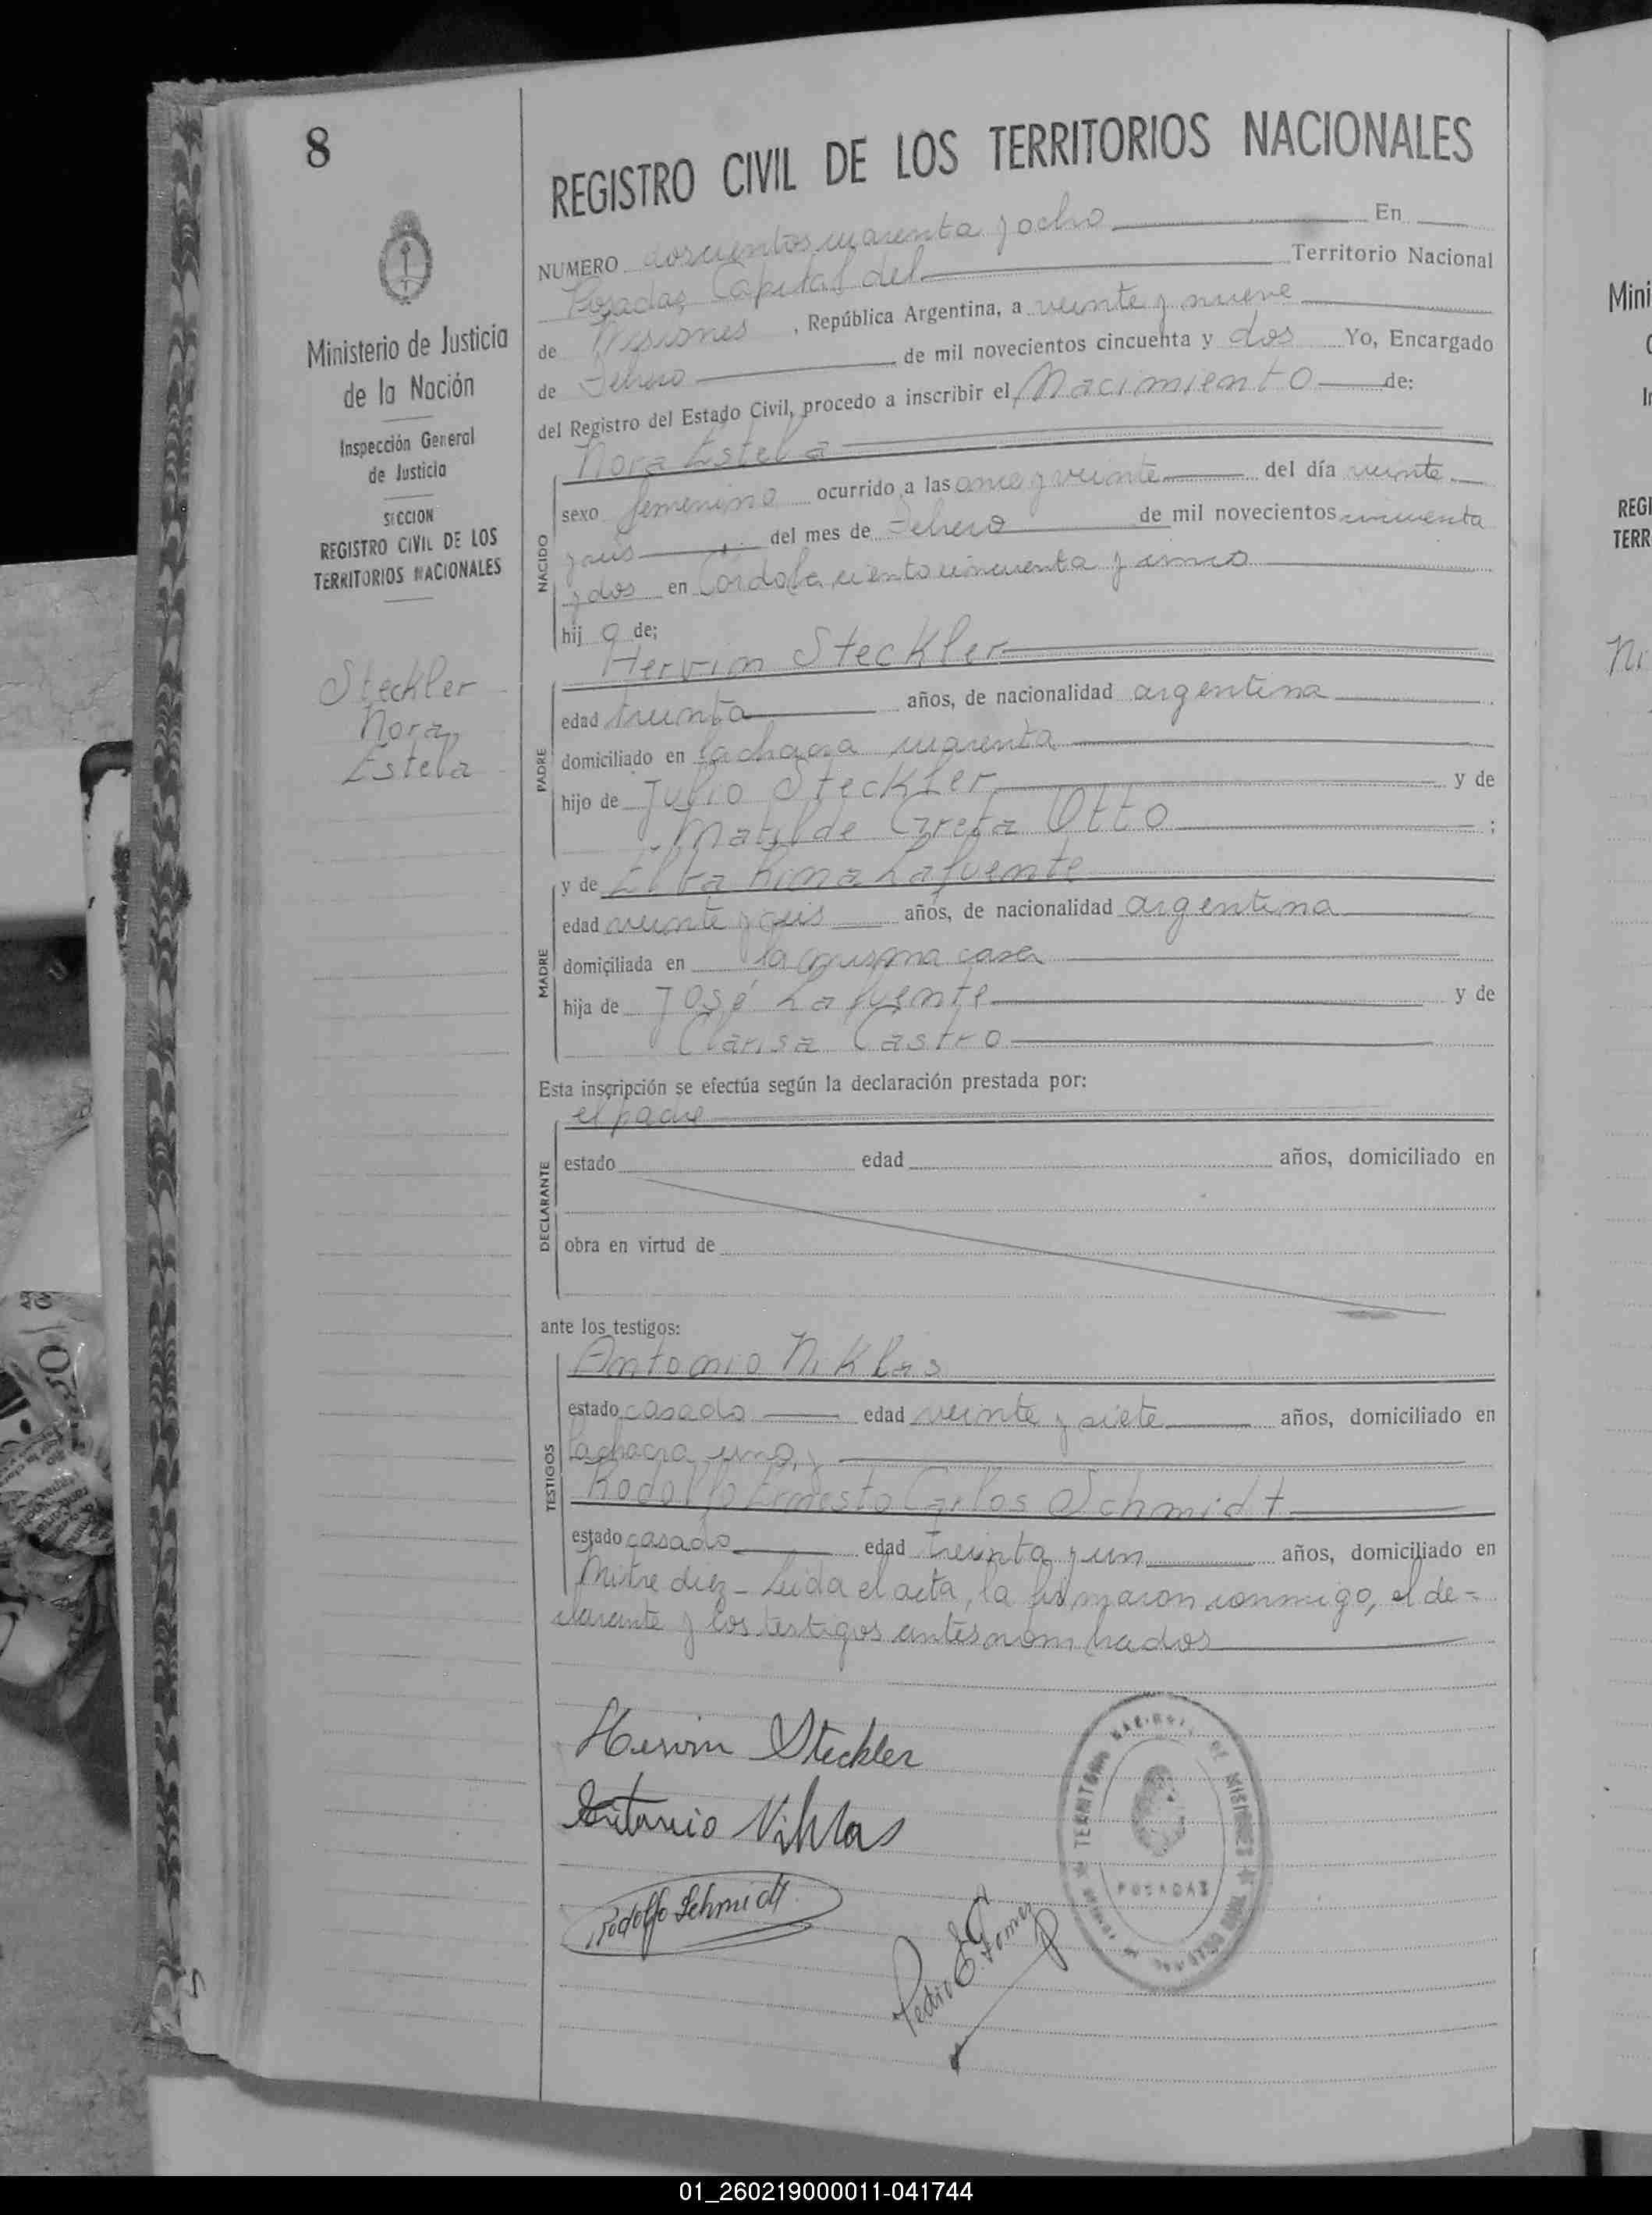 8
REGISTRO CIVIL DE LOS TERRITORIOS NACIONALES
Ministerio de Justicia
de la Nación
Inspección General
de Justicia
SECCION
REGISTRO CIVIL DE LOS
TERRITORIOS NACIONALES
Steckler
Nora
Estela
NUMERO doscientos cuarenta y ocho En
Posadas, Capital del Territorio Nacional
de Misiones, República Argentina, a veinte y nueve
de Febrero de mil novecientos cincuenta y dos Yo, Encargado
del Registro del Estado Civil, procedo a inscribir el Nacimiento de:
NACIDO
Nora Estela
sexo femenino ocurrido a las once y veinte del día veinte
y seis del mes de Febrero de mil novecientos cincuenta
y dos en Córdoba ciento cincuenta y cinco
hij a de;
PADRE
Hervin Steckler
edad treinta años, de nacionalidad argentina
domiciliado en la chacra cuarenta
hijo de Julio Steckler y de
Matilde Greta Otto ;
MADRE
y de Elba Lafuente
edad veinte y seis años, de nacionalidad argentina
domiciliada en la misma casa
hija de José Lafuente y de
Clarisa Castro
Esta inscripción se efectúa según la declaración prestada por:
DECLARANTE
el padre
estado edad años, domiciliado en
obra en virtud de
ante los testigos:
TESTIGOS
Antonio Niklas
estado casado edad veinte y siete años, domiciliado en
la chacra uno, y
Rodolfo Ernesto Carlos Schmidt
estado casado edad treinta y un años, domiciliado en
Mitre diez - Leída el acta, la firmaron conmigo, el de=
clarante y los testigos antes nombrados
Hervin Steckler
Antonio Niklas
Rodolfo Schmidt
Pedro E. Gomez
TERRITORIO NACIONAL DE MISIONES
POSADAS
Mini
REGI
TERR
01_260219000011-041744